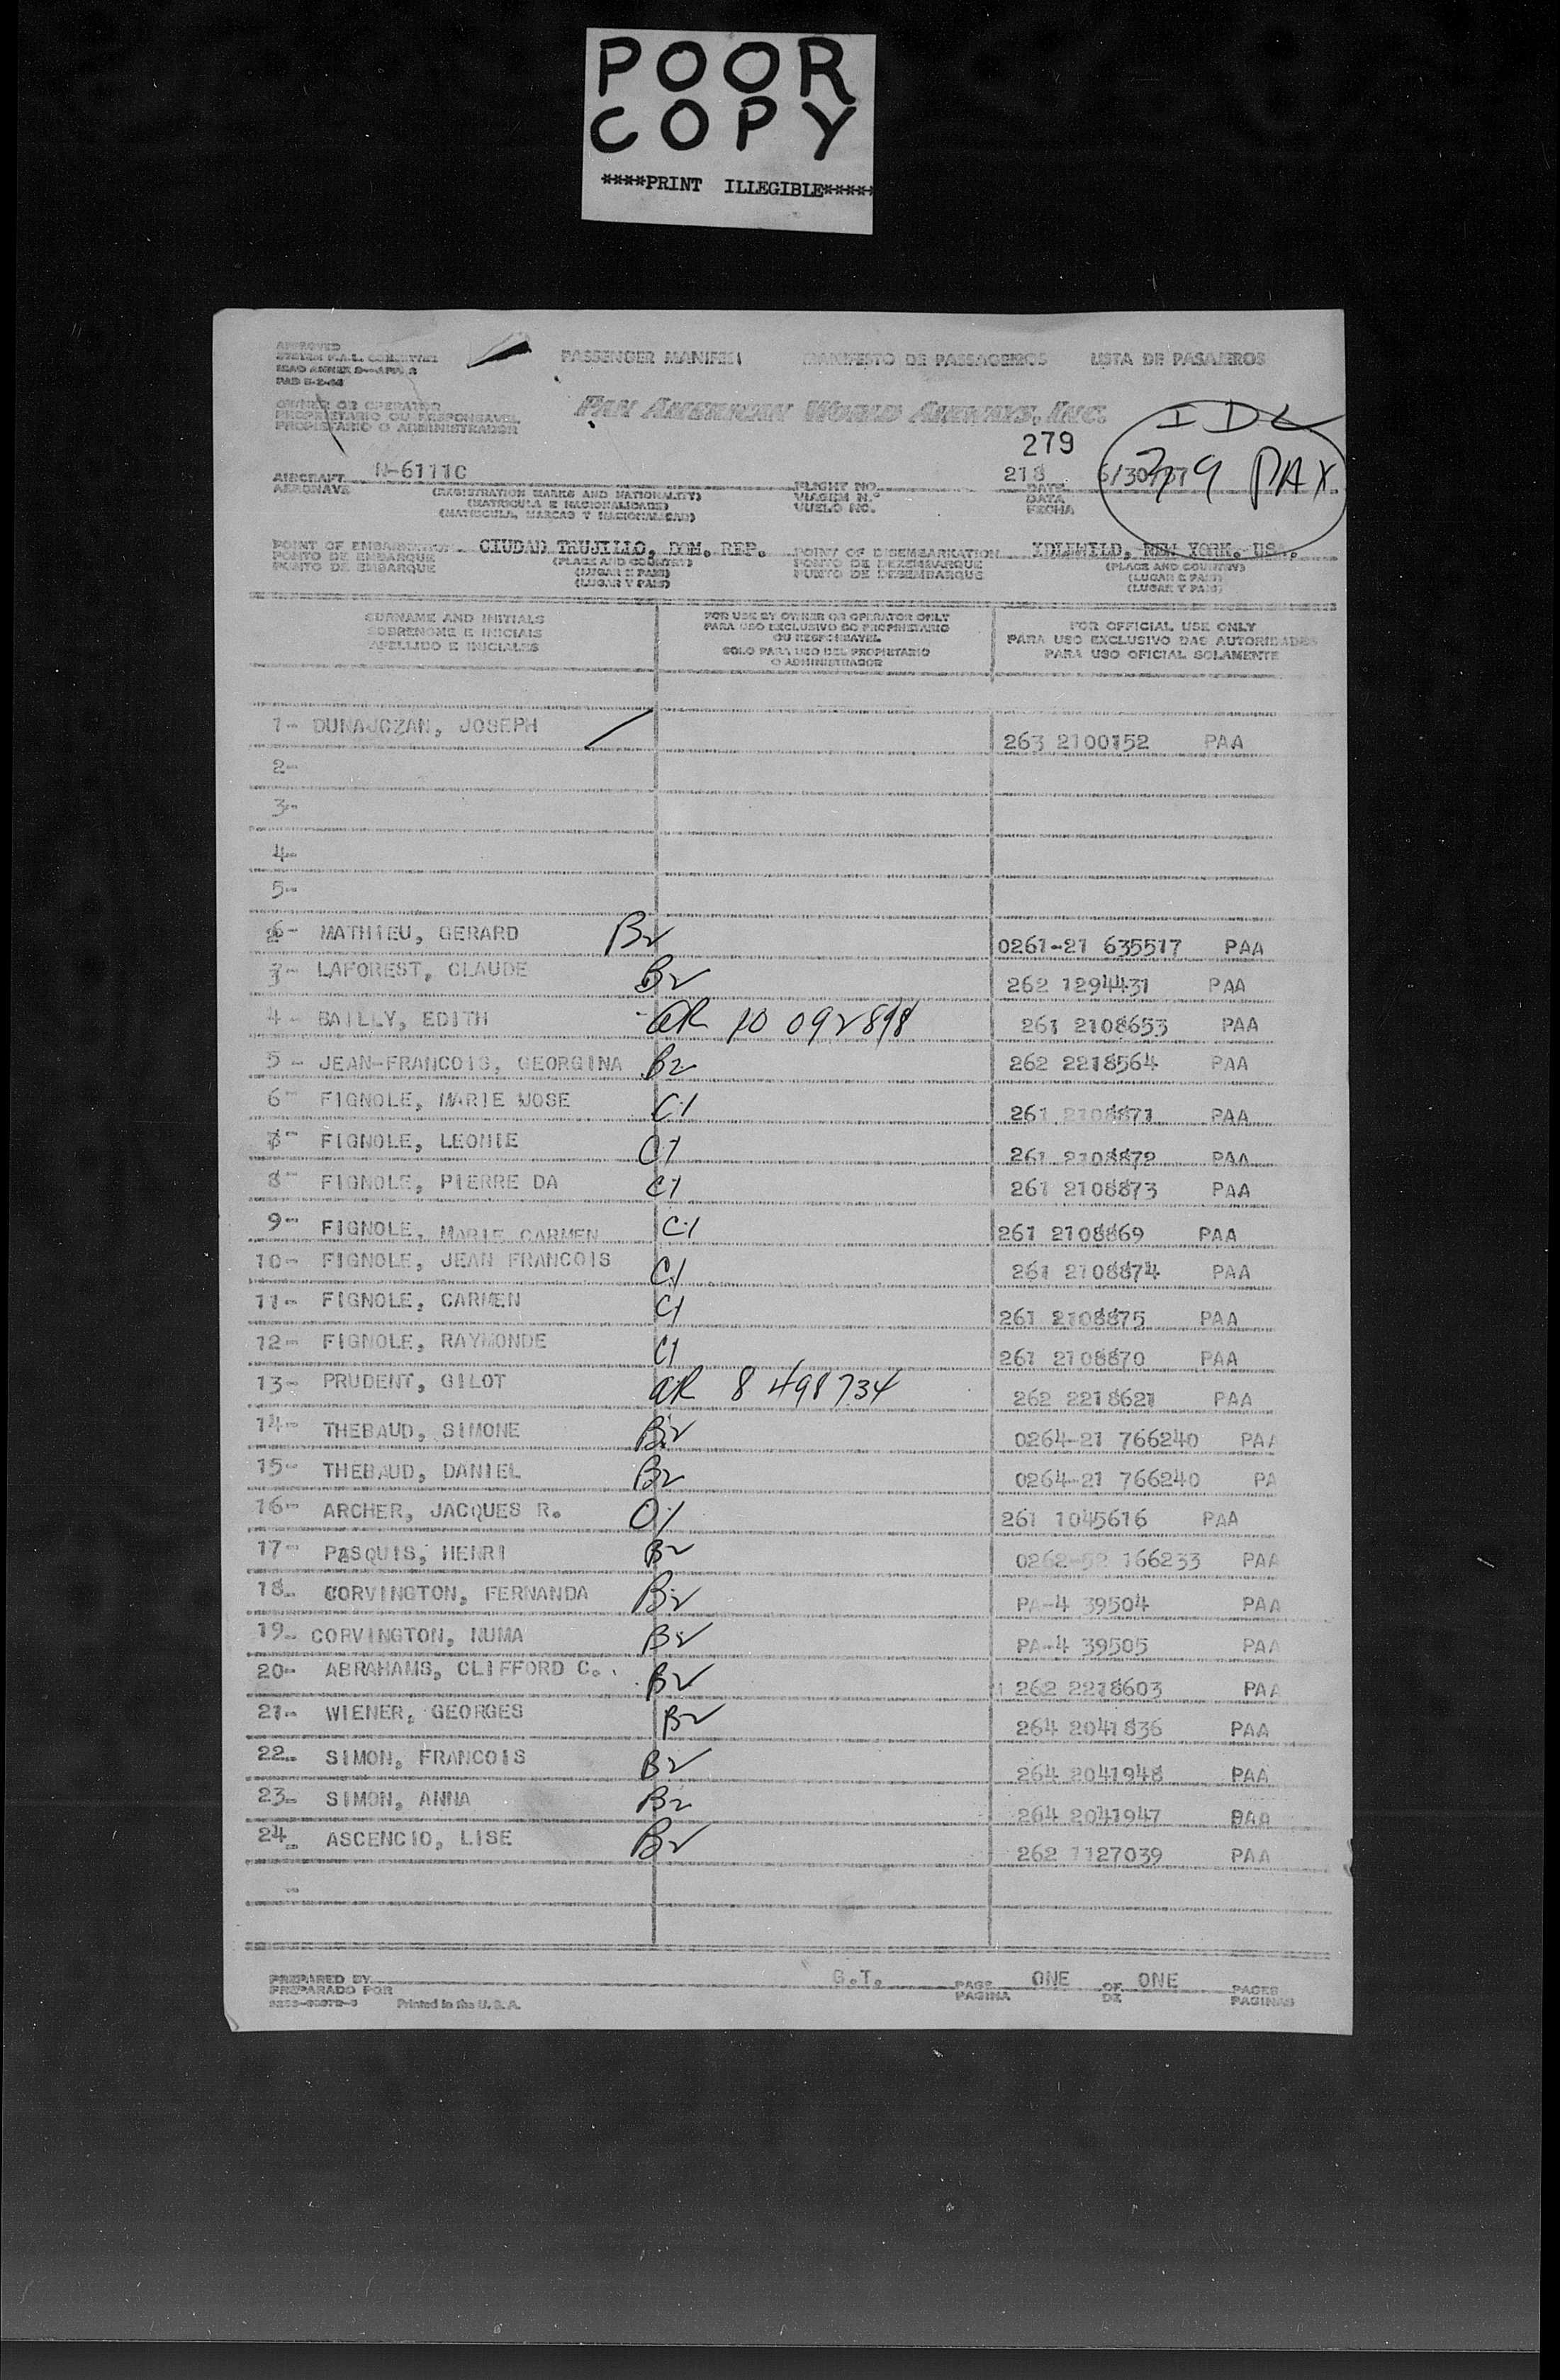 POOR
COPY
****PRINT ILLEGIBLE*****
APPROVED
PASSENGER MANIFEST MANIFESTO DE PASSAGEIROS LISTA DE PASAJEROS
OWNER OR OPERATOR
PROPRIETARIO OU RESPONSAVEL
PROPIETARIO O ADMINISTRADOR
PAN AMERICAN WORLD AIRWAYS, INC.
IDL
279
PAX
AIRCRAFT N-6111C FLIGHT NO. 218 DATE
AERONAVE (REGISTRATION MARKS AND NATIONALITY) VIAGEM N.º DATA
(MATRICULA E NACIONALIDADE) VUELO NO. FECHA
(MATRICULA, MARCAS Y NACIONALIDAD)
POINT OF EMBARKATION CIUDAD TRUJILLO, DOM. REP. POINT OF DISEMBARKATION IDLEWILD, NEW YORK. USA.
PONTO DE EMBARQUE (PLACE AND COUNTRY) PONTO DE DEZEMBARQUE (PLACE AND COUNTRY)
PUNTO DE EMBARQUE (LUGAR E PAIS) PUNTO DE DESEMBARQUE (LUGAR E PAIS)
(LUGAR Y PAIS) (LUGAR Y PAIS)
SURNAME AND INITIALS FOR USE BY OWNER OR OPERATOR ONLY FOR OFFICIAL USE ONLY
SOBRENOME E INICIAIS PARA USO EXCLUSIVO DO PROPRIETARIO PARA USO EXCLUSIVO DAS AUTORIDADES
APELLIDO E INICIALES OU RESPONSAVEL PARA USO OFICIAL SOLAMENTE
SOLO PARA USO DEL PROPIETARIO
O ADMINISTRADOR
1- DUNAJCZAN, JOSEPH 263 2100152 PAA
2-
3-
4-
5-
2- MATHIEU, GERARD B2 0261-21 635517 PAA
3- LAFOREST, CLAUDE B2 262 1294431 PAA
4- BAILLY, EDITH AR 10 092898 261 2108653 PAA
5- JEAN-FRANCOIS, GEORGINA B2 262 2218564 PAA
6- FIGNOLE, MARIE WOSE C1 261 2108871 PAA
7- FIGNOLE, LEONIE C1 261 2108872 PAA
8- FIGNOLE, PIERRE DA C1 261 2108873 PAA
9- FIGNOLE, MARIE CARMEN C1 261 2108869 PAA
10- FIGNOLE, JEAN FRANCOIS C1 261 2108874 PAA
11- FIGNOLE, CARMEN C1 261 2108875 PAA
12- FIGNOLE, RAYMONDE C1 261 2108870 PAA
13- PRUDENT, GILOT AR 8 498734 262 2218621 PAA
14- THEBAUD, SIMONE B2 0264-21 766240 PAA
15- THEBAUD, DANIEL B2 0264-21 766240 PA
16- ARCHER, JACQUES R. 261 1045616 PAA
17- PASQUIS, HENRI B2 0262-52 166233 PAA
18- CORVINGTON, FERNANDA B2 PA-4 39504 PAA
19- CORVINGTON, NUMA B2 PA-4 39505 PAA
20- ABRAHAMS, CLIFFORD C. B2 262 2218603 PAA
21- WIENER, GEORGES B2 264 2041836 PAA
22- SIMON, FRANCOIS B2 264 2041948 PAA
23- SIMON, ANNA B2 264 2041947 PAA
24- ASCENCIO, LISE B2 262 1127039 PAA
PREPARED BY G.T. PAGE ONE OF ONE PAGES
PREPARADO POR PAGINA DE PAGINAS
Printed in the U. S. A.